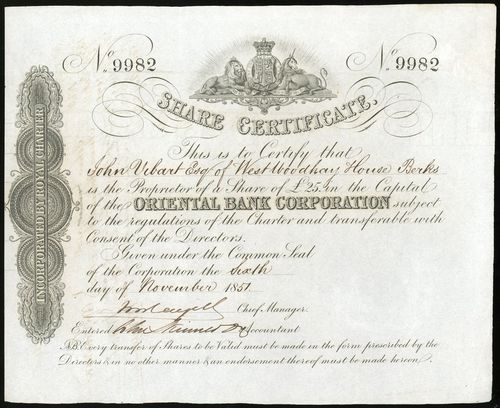 No. 9982
No. 9982
SHARE CERTIFICATE.
INCORPORATED BY ROYAL CHARTER
This is to Certify that
John Vibart Esq of West Woodhay House Berks
is the Proprietor of a Share of £25 in the Capital
of the ORIENTAL BANK CORPORATION subject
to the regulations of the Charter and transferable with
Consent of the Directors.
Given under the Common Seal
of the Corporation the Sixth
day of November 1851.
Chief Manager.
Entered John Accountant
NB. Every transfer of Shares to be Valid must be made in the form prescribed by the
Directors & in no other manner & an endorsement thereof must be made hereon.